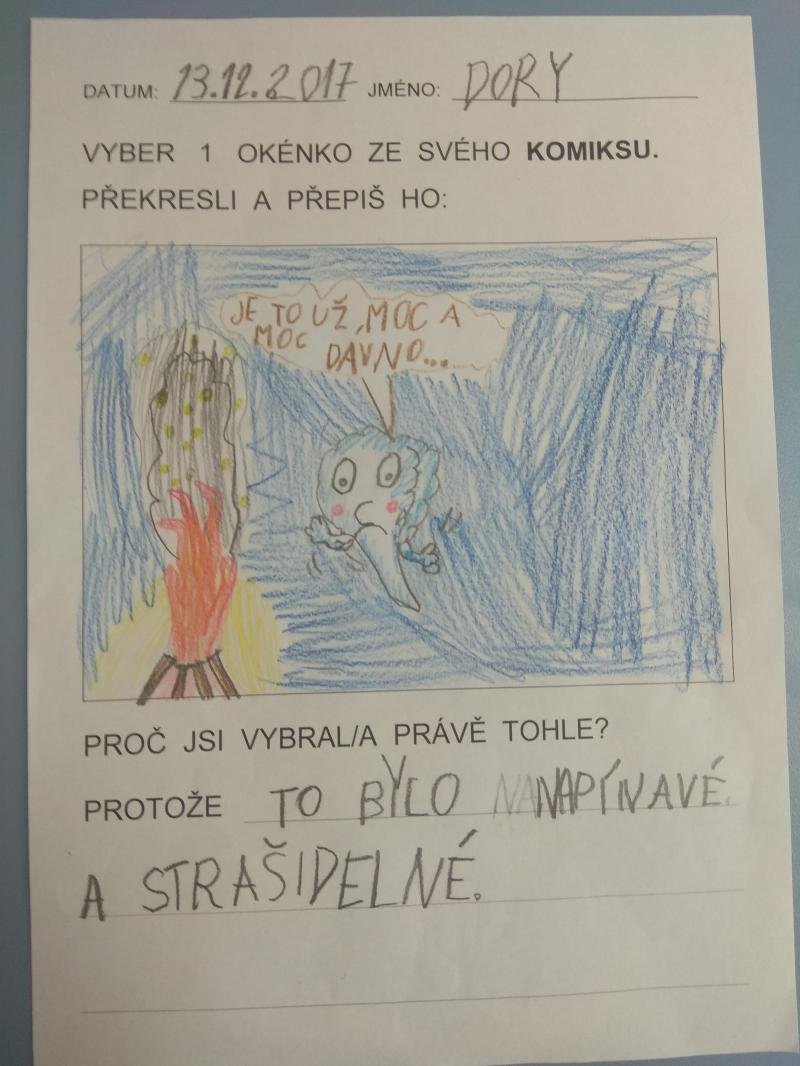 DATUM: 13.12.2017 JMÉNO: DORY
VYBER 1 OKÉNKO ZE SVÉHO KOMIKSU.
PŘEKRESLI A PŘEPIŠ HO:
JE TO UŽ, MOC A
MOC DAVNO...
PROČ JSI VYBRAL/A PRÁVĚ TOHLE?
PROTOŽE TO BYLO NAPÍNAVÉ.
A STRAŠIDELNÉ.